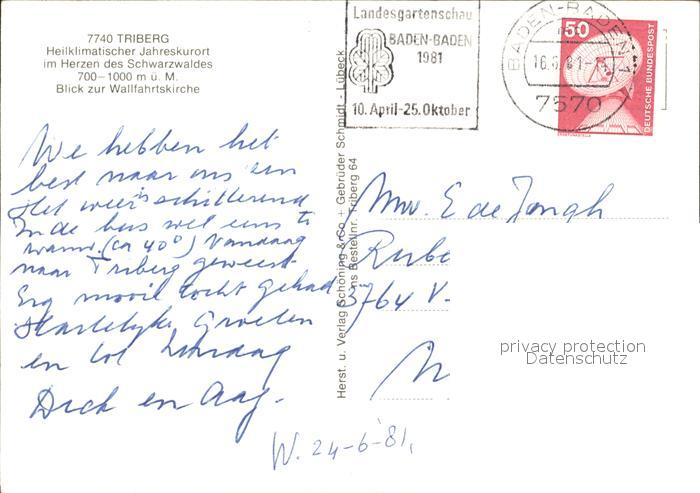 7740 TRIBERG
Heilklimatischer Jahreskurort
im Herzen des Schwarzwaldes
700–1000 m ü. M.
Blick zur Wallfahrtskirche
Landesgartenschau
BADEN-BADEN
1981
10. April-25. Oktober
BADEN-BADEN 1
7570
50
DEUTSCHE BUNDESPOST
We hebben het
best naar ons zin
Het weer is schitterend
In de bus wel eens te
warm. (ca 40°) Vandaag
naar Triberg geweest
Erg mooie tocht gehad
Hartelijke Groeten
en tot Zondag
Dick en Aag.
W. 24-6-'81.
Herst. u. Verlag Schöning & Co + Gebrüder Schmidt - Lübeck
ns Bestellnr. Triberg 64
Mw. E de Jongh
Rube
3764 V
privacy protection
Datenschutz